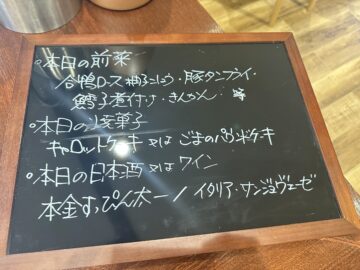 ・本日の前菜
合鴨ロース柚子こしょう・豚タンブライ・
鱈子煮付け・きんかん
・本日の焼菓子
キャロットケーキ 又は ごまのパウンドケーキ
・本日の日本酒 又は ワイン
本金すっぴん太一 / イタリア・サンジョヴェーゼ